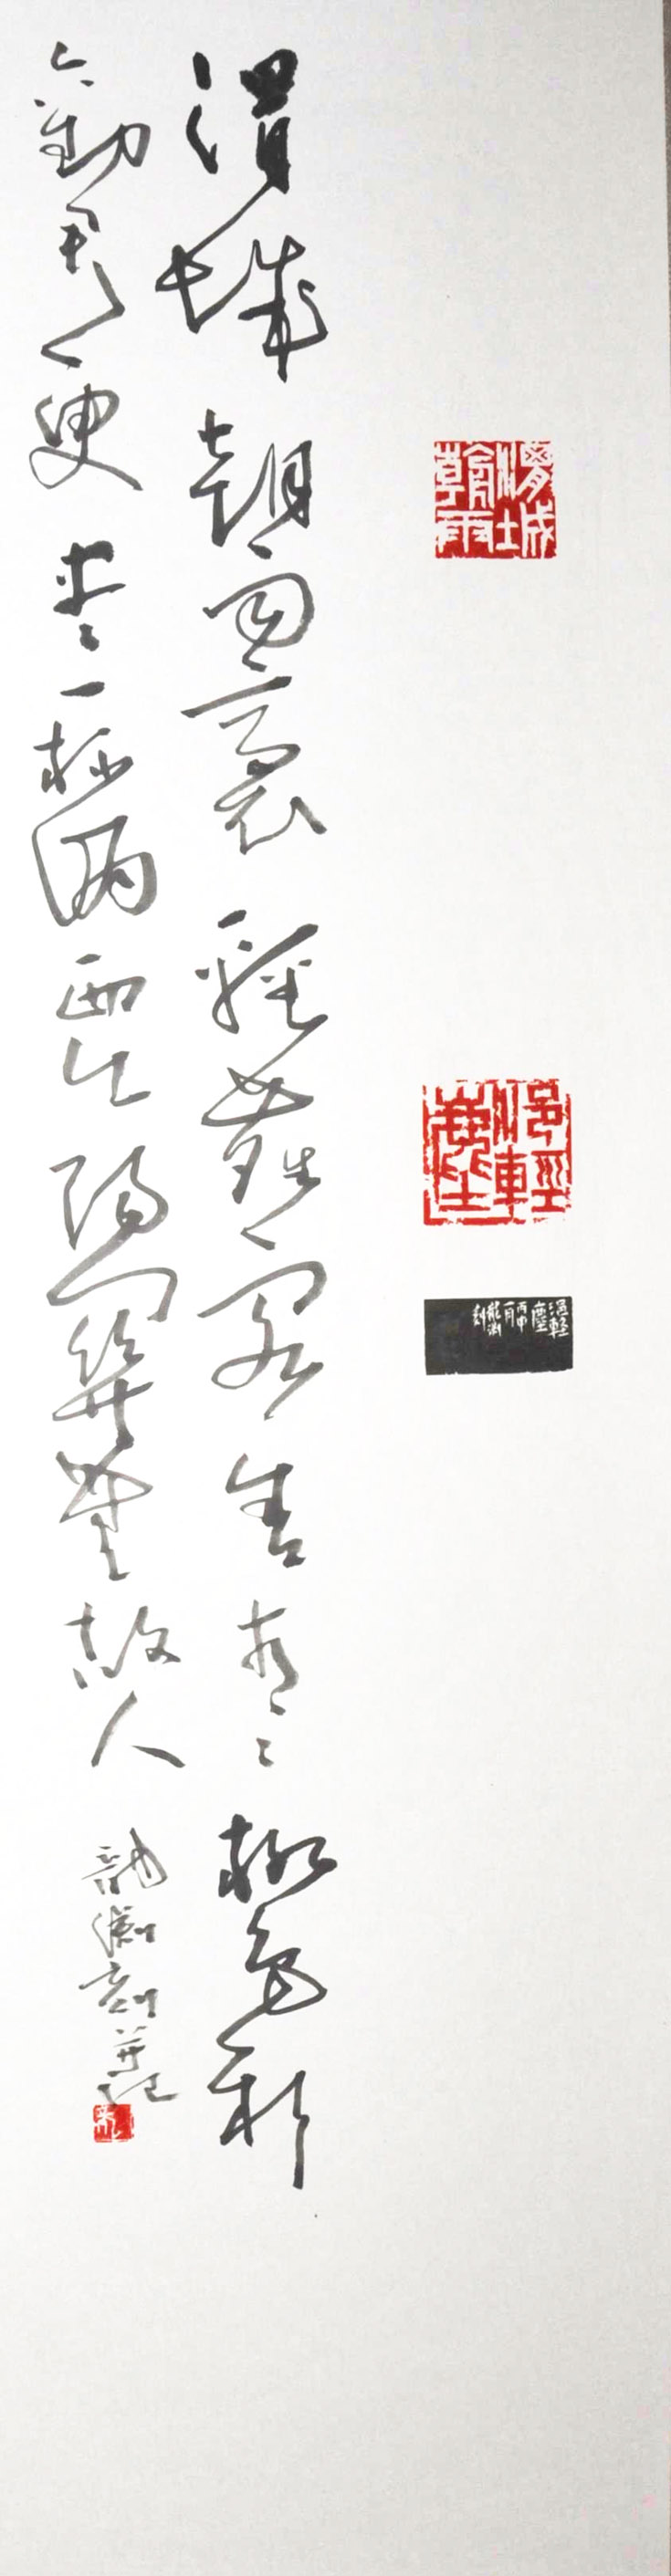 渭城朝雨
浥輕塵
浥輕
塵
丙申
刻
渭城朝雨裛輕塵客舍青〻柳色新
勸君更盡一杯酒西出陽關無故人
龍淵刻並記